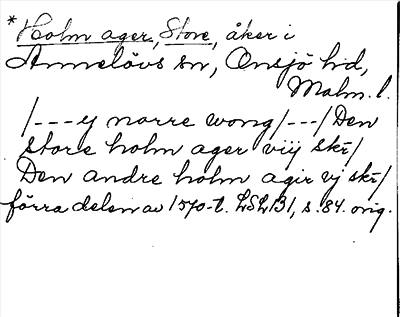 *Holm ager, Store, åker i
Annelövs sn, Onsjö hd,
Malm. l.
/---y norre wong/---/Den
store holm ager viij skr/
Den andre holm agir vj skr/
förra delen av 1570-t. LSLB1, s. 84. orig.